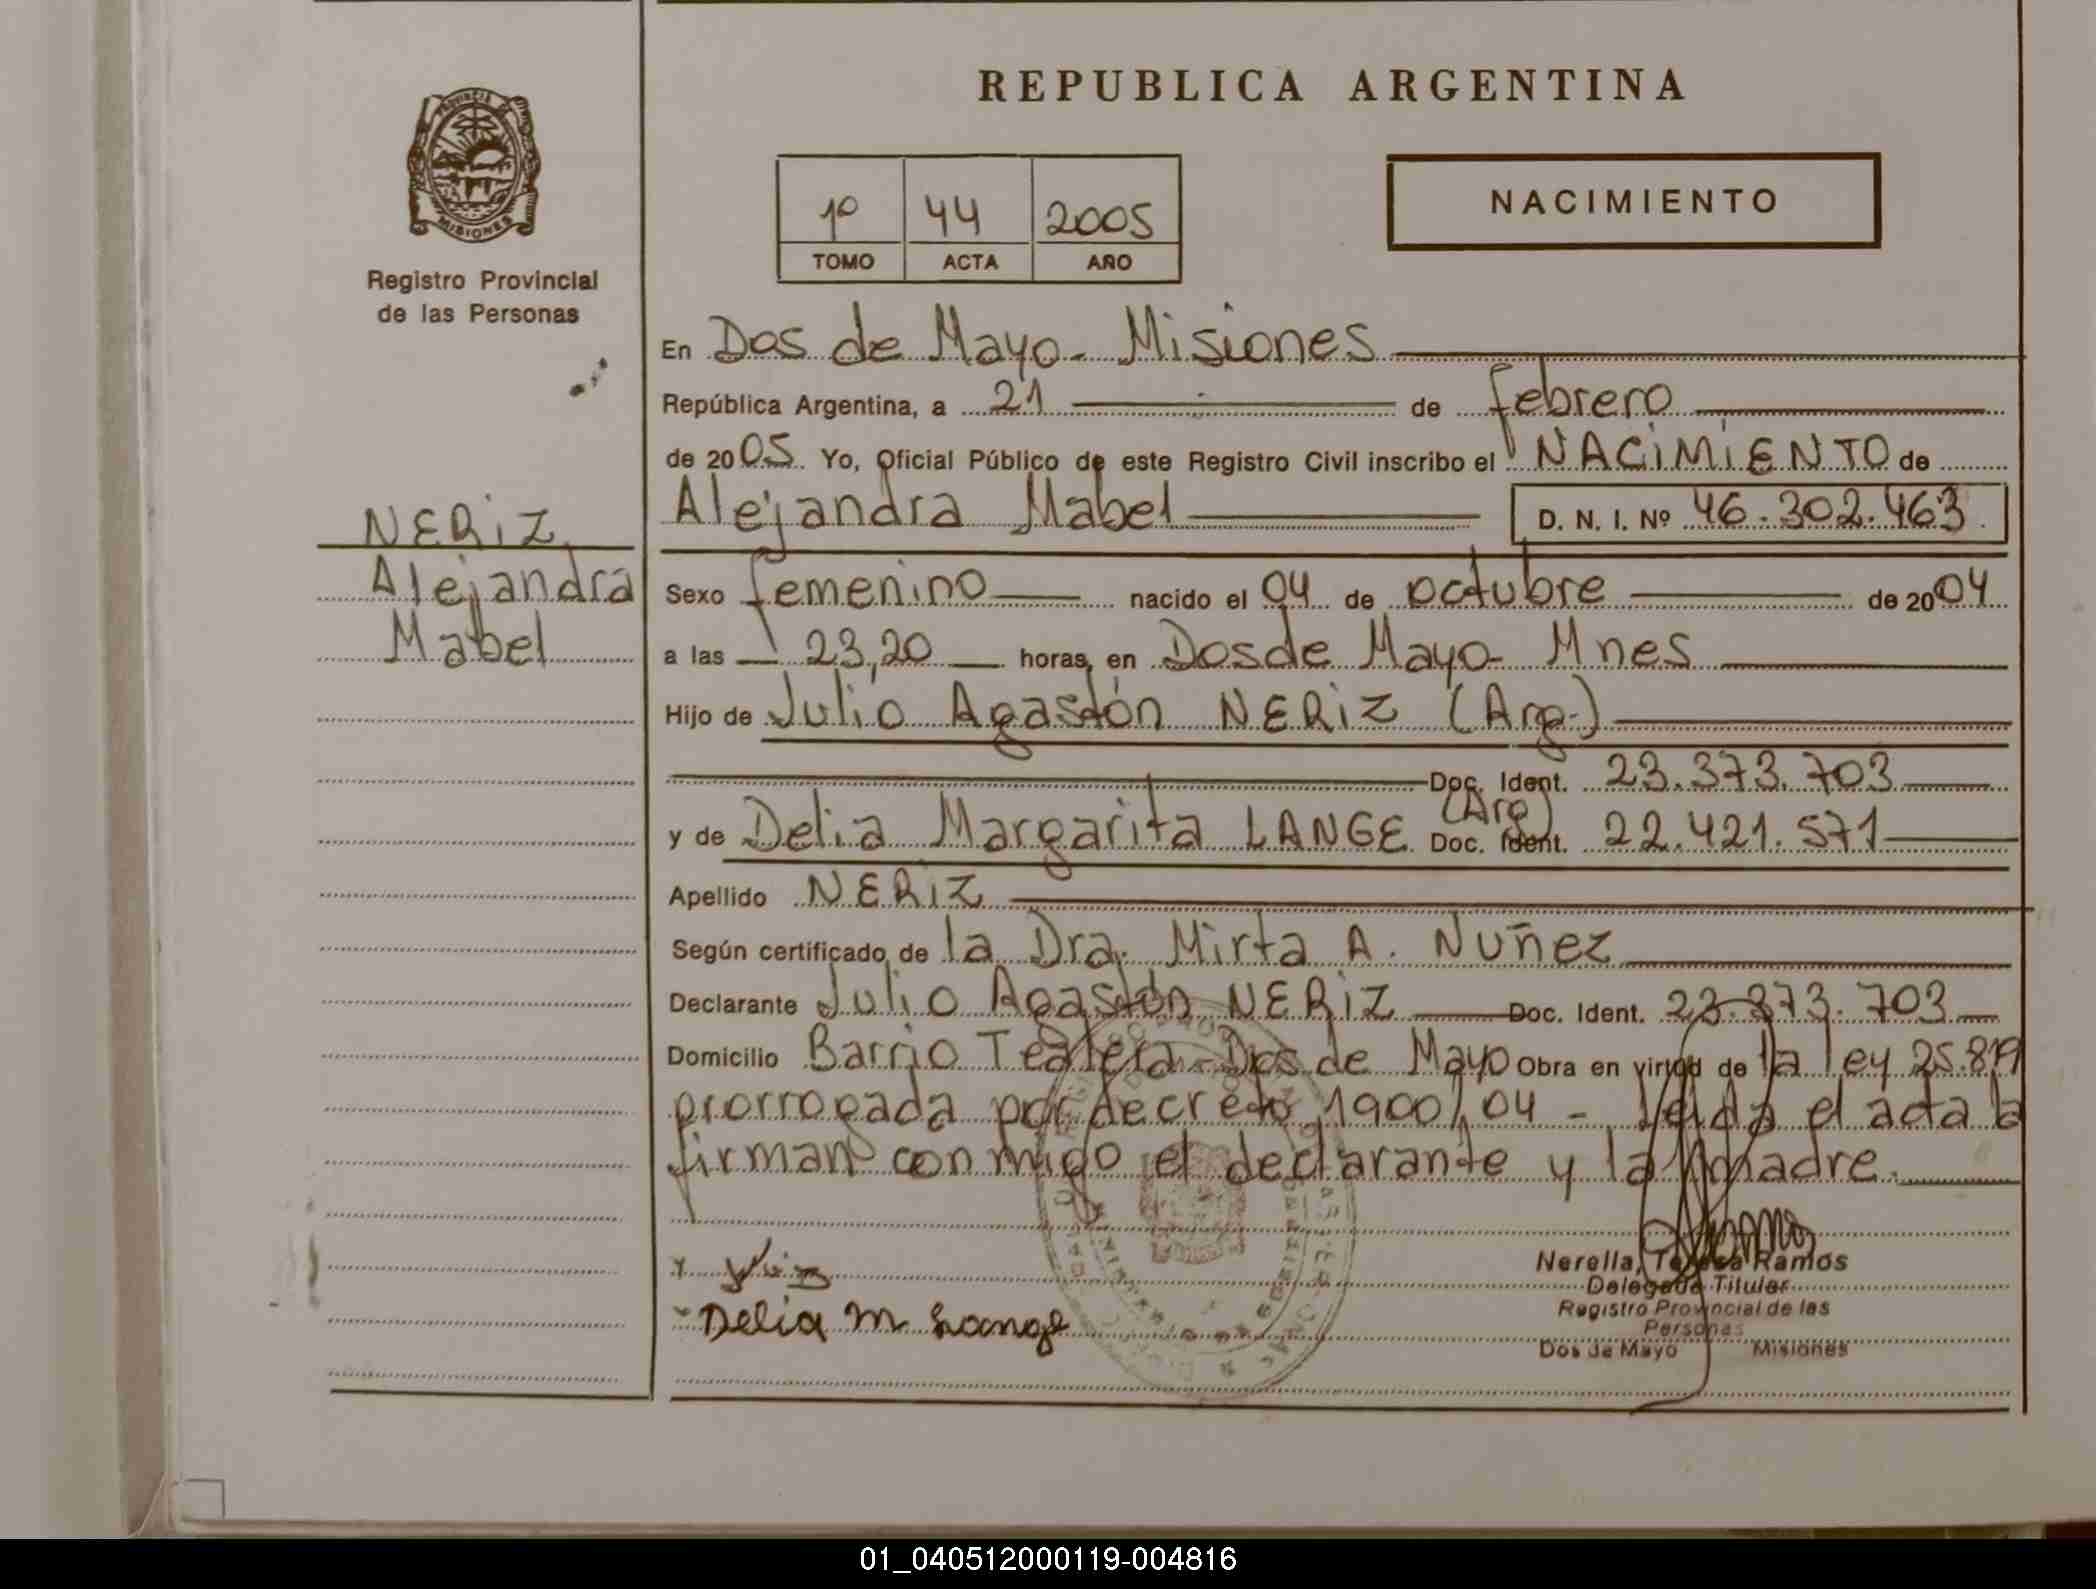 REPUBLICA ARGENTINA
PROVINCIA DE
MISIONES
Registro Provincial
de las Personas
1º 44 2005
TOMO ACTA AÑO
NACIMIENTO
NERiZ
Alejandra
Mabel
En Dos de Mayo - Misiones
República Argentina, a 21 de febrero
de 2005. Yo, Oficial Público de este Registro Civil inscribo el NACiMiENTO de
Alejandra Mabel D. N. I. Nº 46.302.463
Sexo femenino nacido el 04 de octubre de 2004
a las 23,20 horas, en Dos de Mayo - Mnes
Hijo de Julio Agastón NERiZ (Arg.)
Doc. Ident. 23.373.703
y de Delia Margarita LANGE (Arg) Doc. Ident. 22.421.571
Apellido NERiZ
Según certificado de la Dra. Mirta A. Nuñez
Declarante Julio Agastón NERiZ Doc. Ident. 23.373.703
Domicilio Barrio Tealera - Dos de Mayo Obra en virtud de la ley 25.819
prorrogada por decreto 1900/04 - Leida el acta la
firman conmigo el declarante y la madre.
Delia M Lange
Nerella, Teresa Ramos
Delegada Titular
Registro Provincial de las
Personas
Dos de Mayo Misiones
01_040512000119-004816